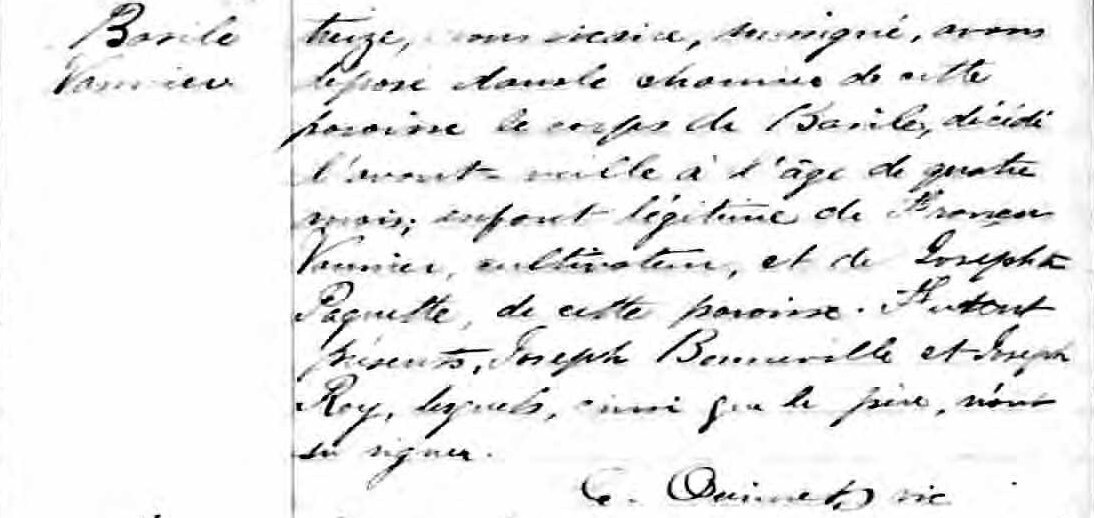 Basile
Vannier
treize, nous vicaire, soussigné, avons
déposé dans le charnier de cette
paroisse le corps de Basile, décédé
l'avant-veille à l'âge de quatre
mois; enfant légitime de François
Vannier, cultivateur, et de Josephte
Paquette, de cette paroisse. Furent
présents, Joseph Bonneville et Joseph
Roy, lesquels, ainsi que le père, n'ont
su signer.
C. Ouimet, vic